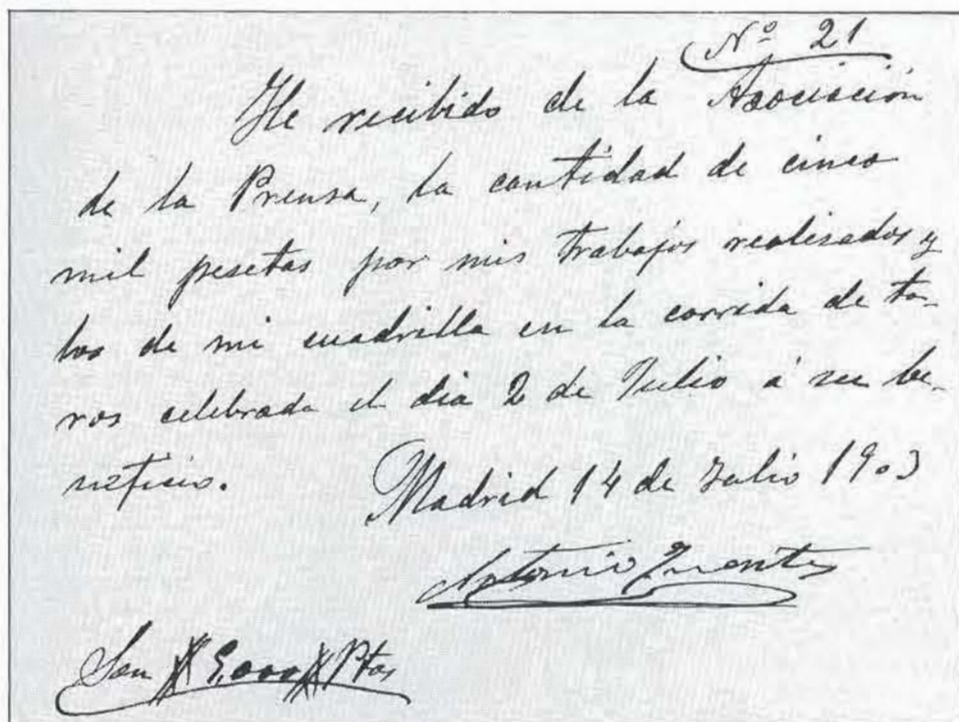 Nº 21
He recibido de la Asociación
de la Prensa, la cantidad de cinco
mil pesetas por mis trabajos realisados y
los de mi cuadrilla en la corrida de to-
ros celebrada el dia 2 de Julio á su be-
neficio.
Madrid 14 de Julio 1903
Antonio Fuentes
Son # 5,000 # Ptas